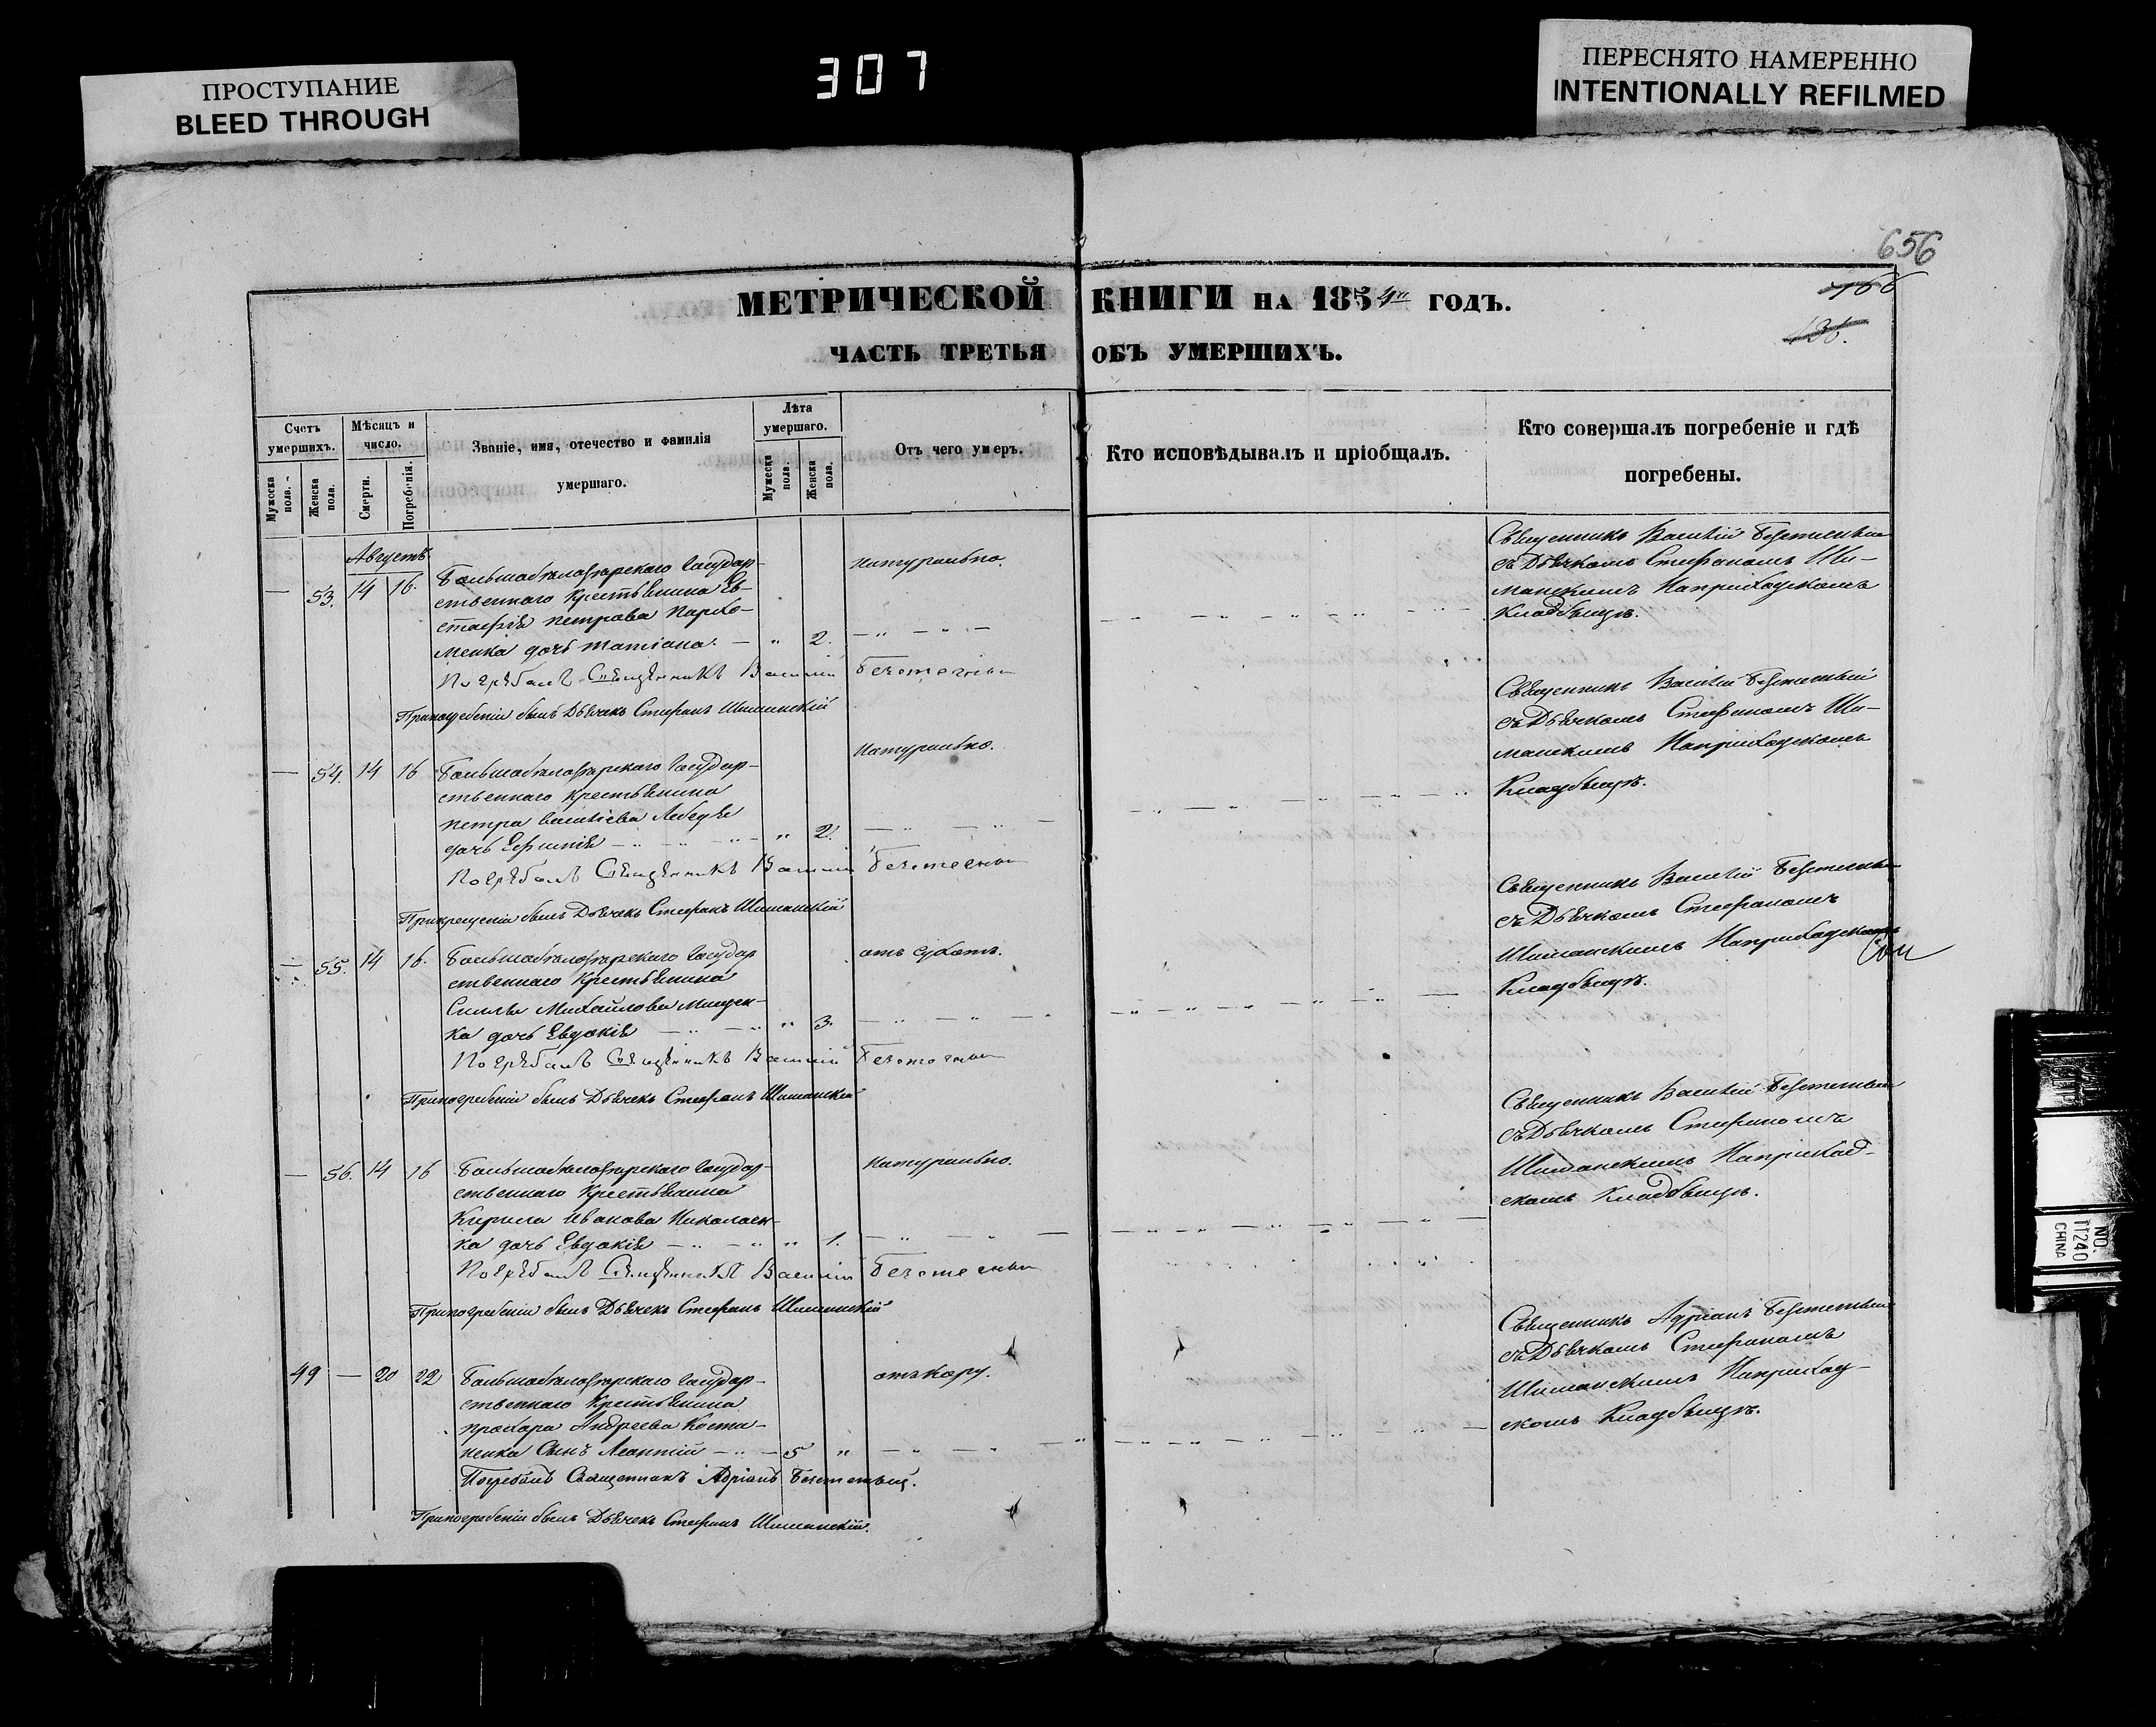 ПРОСТУПАНИЕ
BLEED THROUGH
307
ПЕРЕСНЯТО НАМЕРЕННО
INTENTIONALLY REFILMED
656
МЕТРИЧЕСКОЙ КНИГИ НА 1854 ГОДЪ.
ЧАСТЬ ТРЕТЬЯ ОБЪ УМЕРШИХЪ.
Счетъ умершихъ.
Мужеска пола.
Женска пола.
Мѣсяцъ и число.
Смерти.
Погребенія.
Званіе, имя, отечество и фамилія
умершаго.
Лѣта умершаго.
Мужеска пола.
Женска пола.
Отъ чего умеръ.
Кто исповѣдывалъ и пріобщалъ.
Кто совершалъ погребеніе и гдѣ
погребены.
Августъ
— 53. 14 16. Государ-
ственнаго Крестьянина Ев-
стафія Петрова Пархо-
менка дочь Татіана. — " 2.
Натурально.
Погребалъ Священникъ Василій
При погребеніи былъ Дьячекъ Стефанъ Шиманскій
Священникъ Василій
съ Дьячкомъ Стефаномъ Ши-
манскимъ На приходскомъ
Кладбищѣ.
— 54. 14 16 Государ-
ственнаго Крестьянина
Петра Василіева
дочь Ефимія — " 2.
Натурально.
Погребалъ Священникъ Василій
былъ Дьячекъ Стефанъ Шиманскій
Священникъ Василій
съ Дьячкомъ Стефаномъ Ши-
манскимъ На приходскомъ
Кладбищѣ.
— 55. 14 16. Государ
ственнаго Крестьянина
Михайлова Мищен-
ка дочь Евдокія — " 3.
отъ сухотъ.
Погребалъ Священникъ Василій
При погребеніи былъ Дьячекъ Стефанъ Шиманскій
Священникъ Василій
съ Дьячкомъ Стефаномъ
Шиманскимъ На приходскомъ
Кладбищѣ.
— 56. 14 16 Государ-
ственнаго Крестьянина
Кирила Иванова Николаен-
ка дочь Евдокія — " 1.
Натурально.
Погребалъ Священникъ Василій
При погребеніи былъ Дьячекъ Стефанъ Шиманскій
Священникъ Василій
съ Дьячкомъ Стефаномъ
Шиманскимъ На приход-
скомъ Кладбищѣ.
49 — 20 22 Государ-
ственнаго Крестьянина
Прохора Андреева Коста-
ненка Сынъ Леонтій — 5 "
отъ кору.
Погребалъ Священникъ Адріанъ
При погребеніи былъ Дьячекъ Стефанъ Шиманскій.
Священникъ Адріанъ
съ Дьячкомъ Стефаномъ
Шиманскимъ На приход-
скомъ Кладбищѣ.
NO.
11240
CHINA